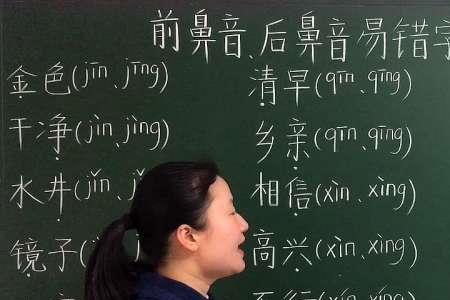 前鼻音、后鼻音易错字
金色(jīn、jīng) 清早(qīn、qīng)
干净(jìn、jìng) 乡亲(qīn、qīng)
水井(jǐn、 相信(xìn、xìng)
镜子( 高兴(xìn、xìng)
不行(